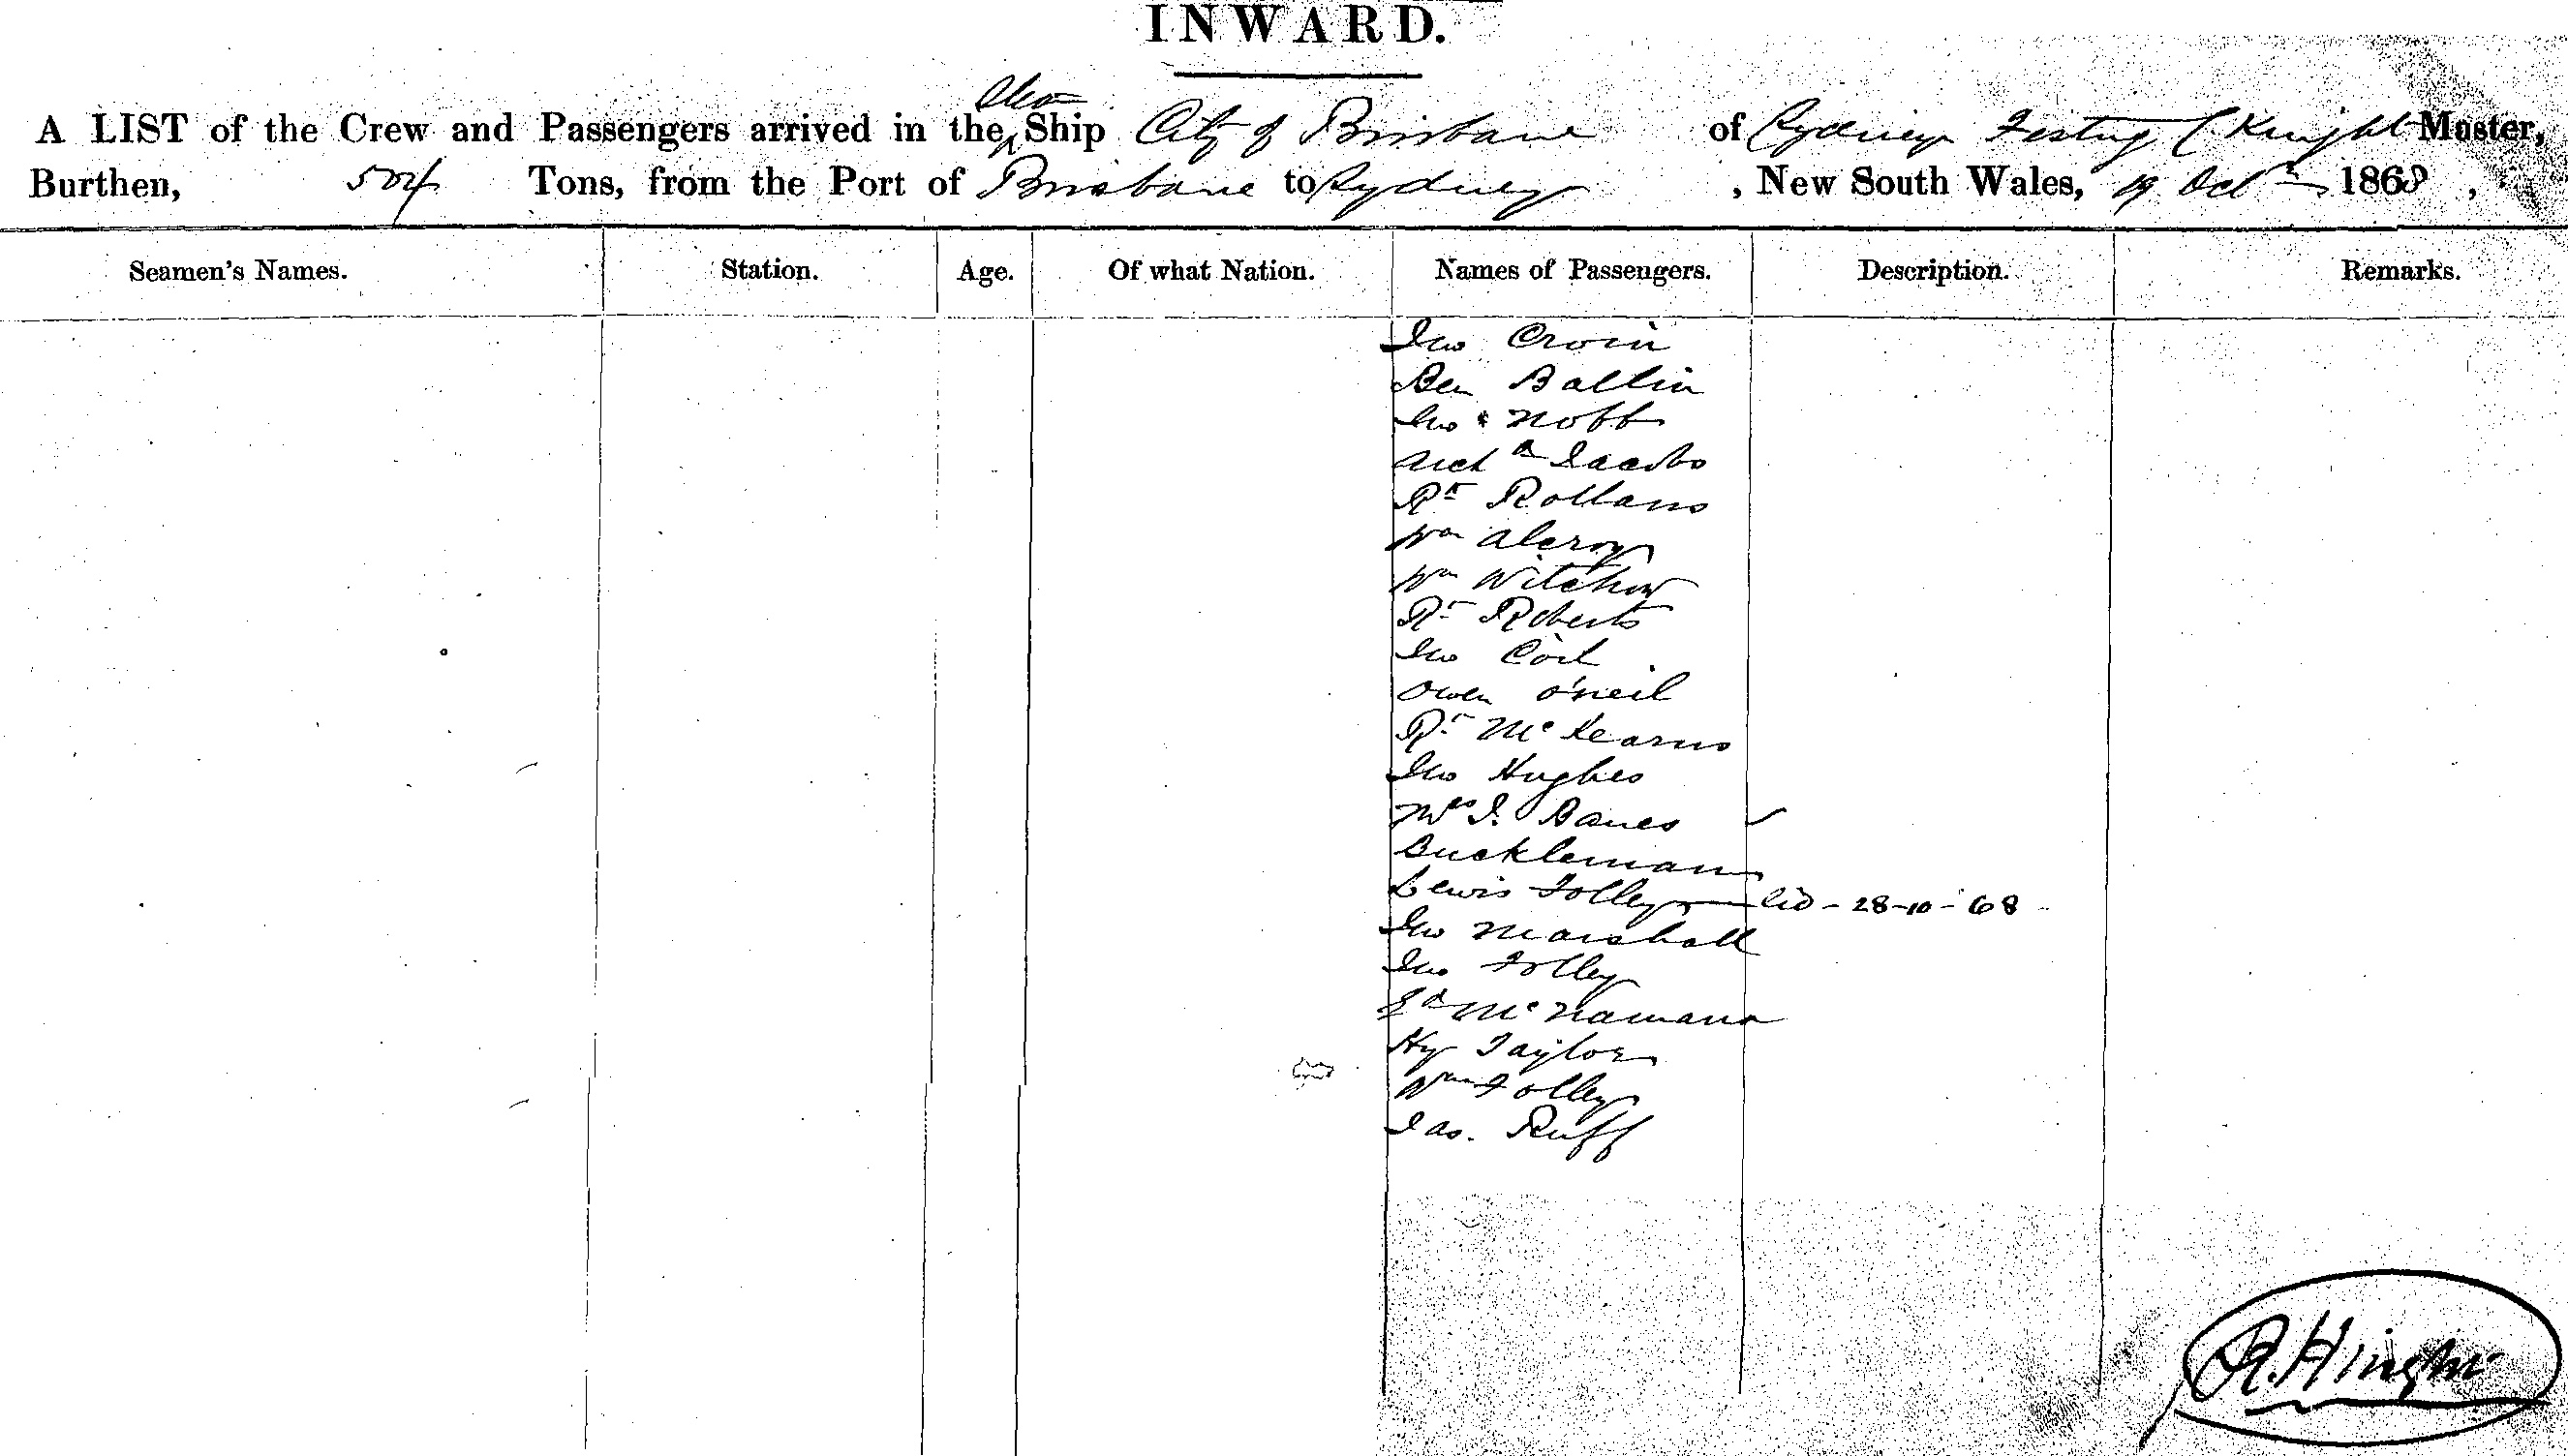 INWARD.
A LIST of the Crew and Passengers arrived in the Ship City of Brisbane of Sydney Knight Master,
Burthen, 504 Tons, from the Port of Brisbane to Sydney, New South Wales, 19 Oct 1868,
Seamen's Names. Station. Age. Of what Nation. Names of Passengers. Description. Remarks.
Jno Croin
Ben Ballin
Jno Nobb
Richd Jacobs
Rt Rollans
Wm Alcroy
Wm Witchow
Rt Roberts
Jno
Owen O'Neil
Rt McKearns
Jno Hughes
Mrs J. Banes
Buckleman
Lewis Folley 28-10-68
Jno Marshall
Jno Folley
Ed McNamara
Hy Taylor
Wm Folley
Jas. Ruff